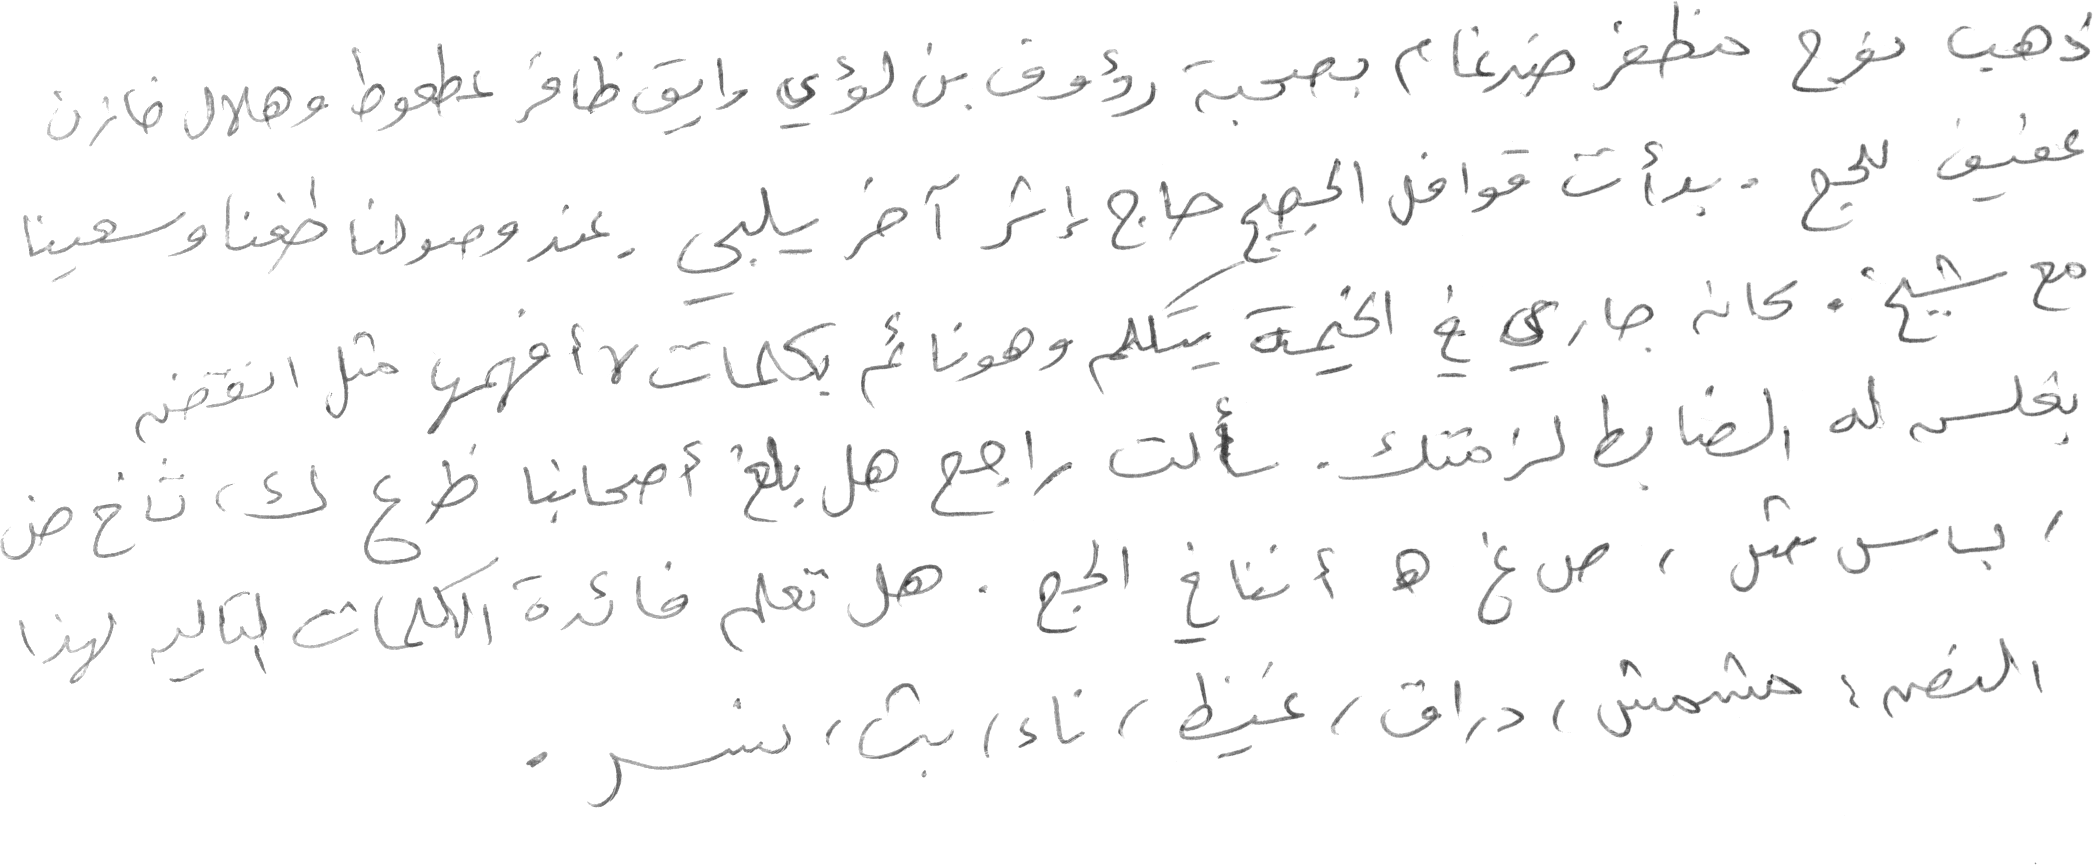 ذهب نوح مظفر ضرغام بصحبة رؤوف بن لؤي رايق ظافر عطعوط و هلال خازن
عفيف للحج . بدأت قوافل الحجيج حاج إثر آخر يلبي . عند وصولنا طفنا وسعينا
مع شيخ . كان جاري في الخيمة يتكلم وهو نائم بكلمات لا أفهمها مثل انقض
بغلس له الضابط لزمتك . سألت راجح هل بلغ أصحابنا ظ ع ك ، ث أ خ ض
، ب س ش ، ص غ ه أننا في الحج . هل تعلم فائدة الكلمات التاليه لهذا
النص : مشمش ، دراق ، غيظ ، ناء ، بث ، نسر .